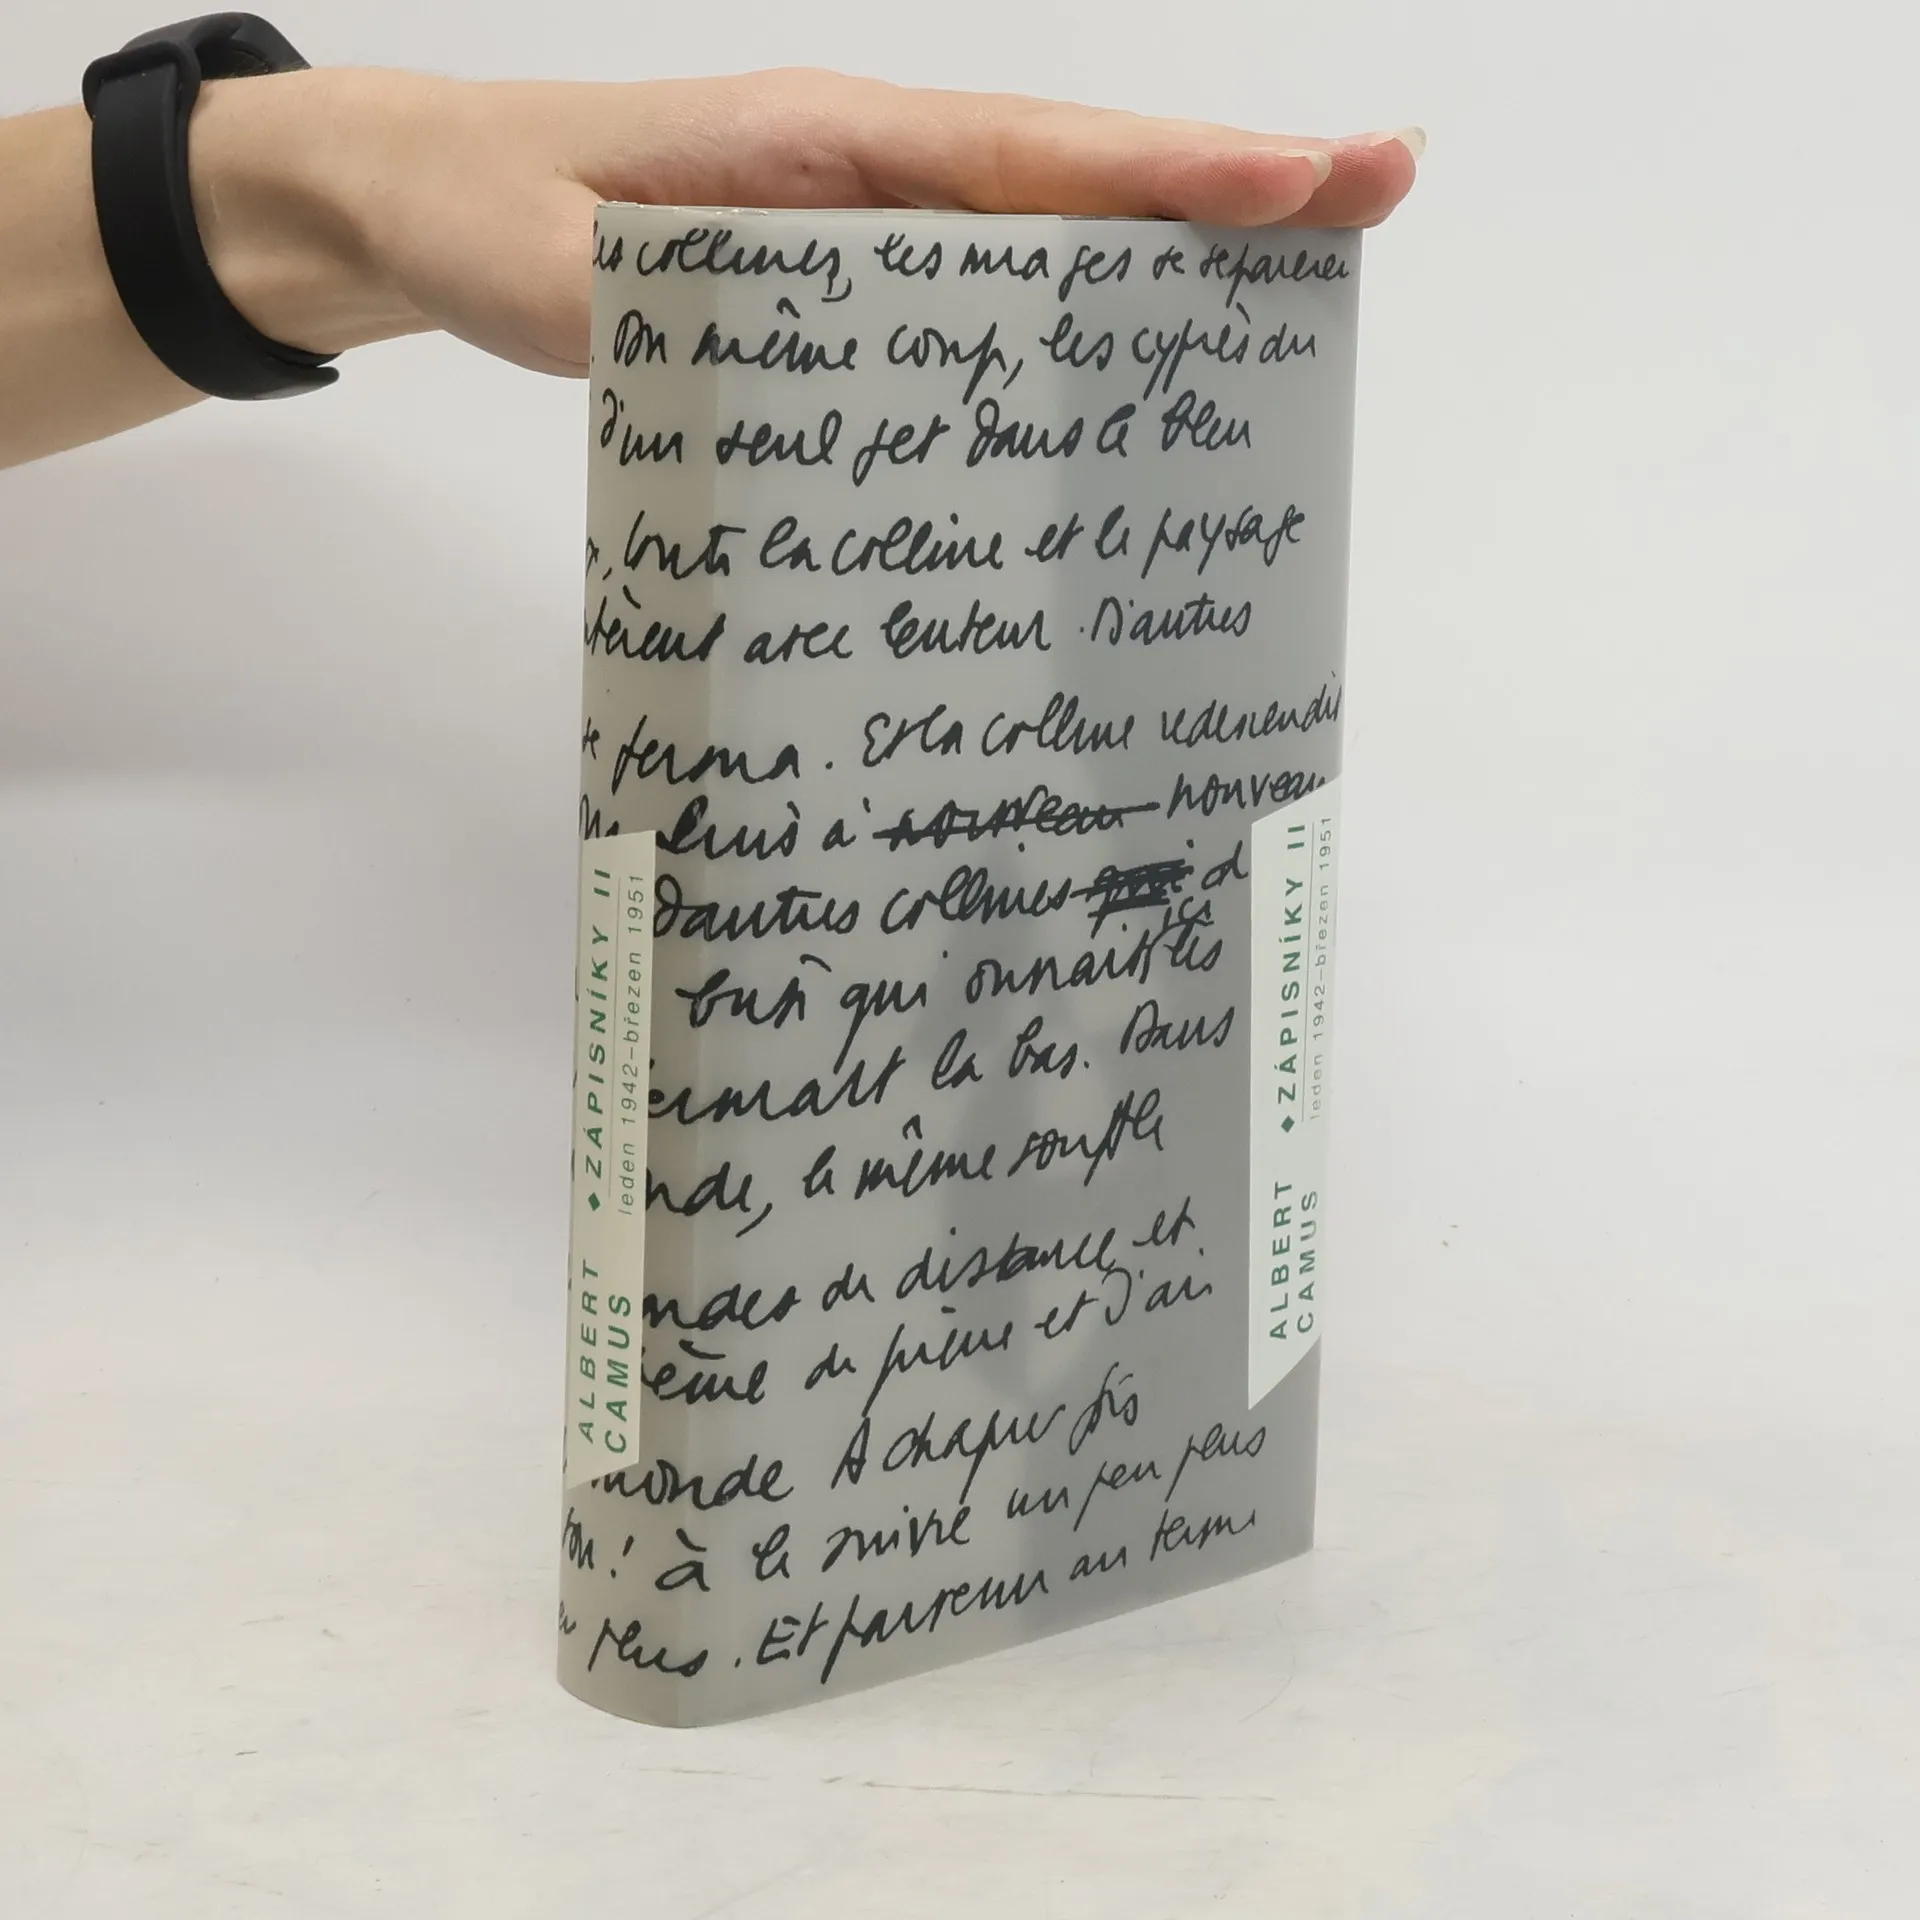 collines, les nuages se séparèrent
. Du même coup, les cyprès du
d'un seul jet dans le bleu
, toute la colline et le paysage
avec lenteur. D'autres
se ferma. Et la colline redescendit
puis à nouveau nouveau
d'autres collines qui d
ici
qui connaiss les
là bas. Dans
nde, le même souffle
ndes de distance et
de pierre et d'air.
monde A chaque fois
! à le suivre un peu plus
plus. Et parvenu au terme
ALBERT CAMUS
◆ZÁPISNÍKY II
leden 1942–březen 1951
ALBERT CAMUS
◆ZÁPISNÍKY II
leden 1942–březen 1951